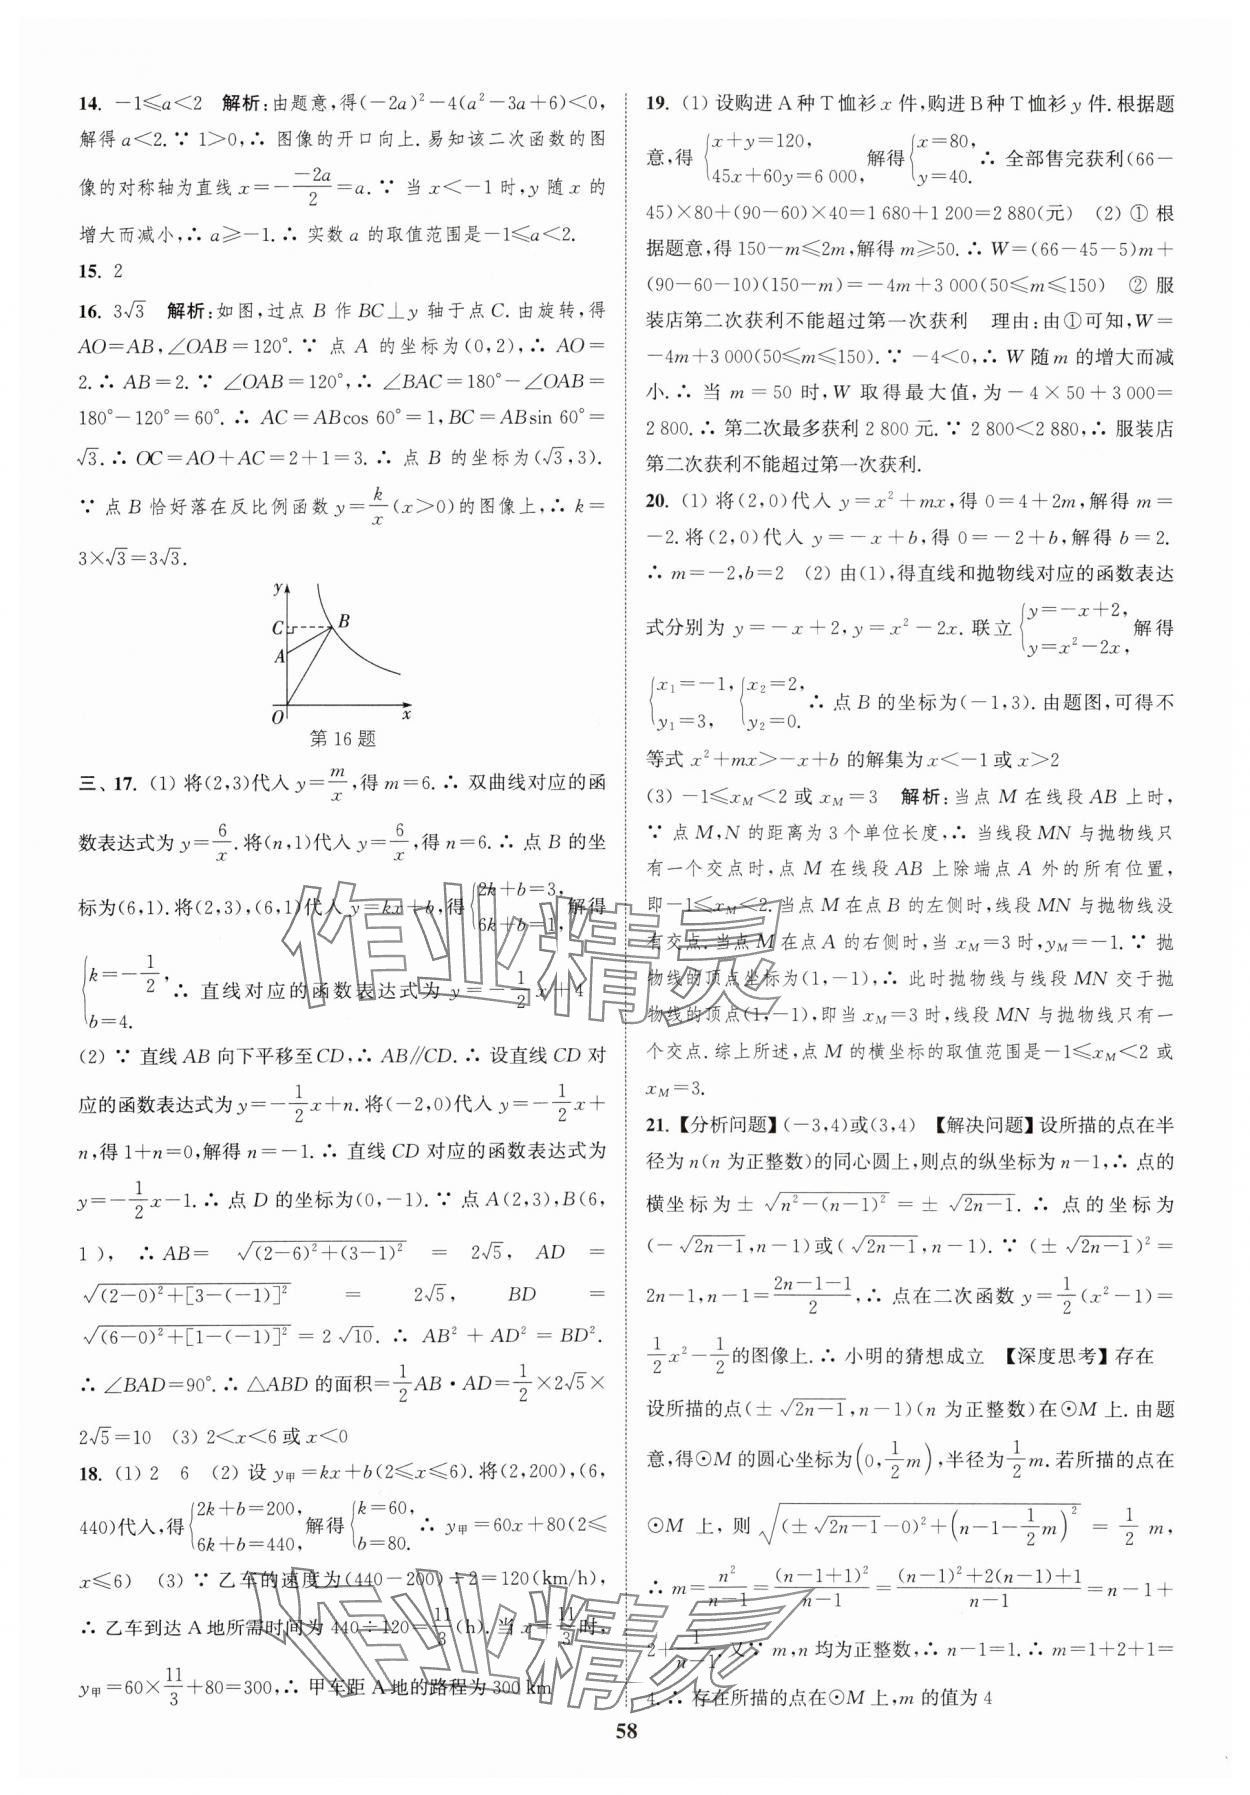 14. －1≤a＜2　解析：由题意，得(－2a)²－4(a²－3a＋6)＜0，
解得a＜2.∵ 1＞0，∴ 图像的开口向上.易知该二次函数的图
像的对称轴为直线 x＝－\frac{－2a}{2}＝a.∵ 当 x＜－1 时，y 随 x 的
增大而减小，∴ a≥－1.∴ 实数 a 的取值范围是－1≤a＜2.
15. 2
16. 3√3　解析：如图，过点 B 作 BC⊥y 轴于点 C.由旋转，得
AO＝AB，∠OAB＝120°.∵ 点 A 的坐标为(0，2)，∴ AO＝
2.∴ AB＝2.∵ ∠OAB＝120°，∴ ∠BAC＝180°－∠OAB＝
180°－120°＝60°.∴ AC＝ABcos 60°＝1，BC＝ABsin 60°＝
√3.∴ OC＝AO＋AC＝2＋1＝3.∴ 点 B 的坐标为(√3，3).
∵ 点 B 恰好落在反比例函数 y＝\frac{k}{x}(x＞0)的图像上，∴ k＝
3×√3＝3√3.
y
C
B
A
O
x
第 16 题
三、17. (1) 将(2，3)代入 y＝\frac{m}{x}，得 m＝6.∴ 双曲线对应的函
数表达式为 y＝\frac{6}{x}.将(n，1)代入 y＝\frac{6}{x}，得 n＝6.∴ 点 B 的坐
标为(6，1).将(2，3)，(6，1)代入 y＝kx＋b，得{2k＋b＝3，6k＋b＝1，解得
{k＝－\frac{1}{2}，b＝4.∴ 直线对应的函数表达式为 y＝－\frac{1}{2}x＋4
(2) ∵ 直线 AB 向下平移至CD，∴ AB∥CD.∴ 设直线 CD 对
应的函数表达式为 y＝－\frac{1}{2}x＋n.将(－2，0)代入 y＝－\frac{1}{2}x＋
n，得 1＋n＝0，解得 n＝－1.∴ 直线 CD 对应的函数表达式为
y＝－\frac{1}{2}x－1.∴ 点 D 的坐标为(0，－1).∵ 点 A(2，3)，B(6，
1)，∴ AB＝√((2－6)²＋(3－1)²)＝2√5，AD＝
√((2－0)²＋[3－(－1)]²)＝2√5，BD＝
√((6－0)²＋[1－(－1)]²)＝2√10.∴ AB²＋AD²＝BD².
∴ ∠BAD＝90°.∴ △ABD 的面积＝\frac{1}{2}AB·AD＝\frac{1}{2}×2√5×
2√5＝10　(3) 2＜x＜6 或 x＜0
18. (1) 2　6　(2) 设 y甲＝kx＋b(2≤x≤6).将(2，200)，(6，
440)代入，得{2k＋b＝200，6k＋b＝440，解得{k＝60，b＝80.∴ y甲＝60x＋80(2≤
x≤6)　(3) ∵ 乙车的速度为(440－200)÷2＝120(km/h)，
∴ 乙车到达 A 地所需时间为 440÷120＝\frac{11}{3}(h).当 x＝\frac{11}{3}时，
y甲＝60×\frac{11}{3}＋80＝300，∴ 甲车距 A 地的路程为 300 km
19. (1) 设购进 A 种 T 恤衫 x 件，购进 B 种 T 恤衫 y 件.根据题
意，得{x＋y＝120，45x＋60y＝6 000，解得{x＝80，y＝40.∴ 全部售完获利(66－
45)×80＋(90－60)×40＝1 680＋1 200＝2 880(元)　(2) ① 根
据题意，得 150－m≤2m，解得 m≥50.∴ W＝(66－45－5)m＋
(90－60－10)(150－m)＝－4m＋3 000(50≤m≤150)　② 服
装店第二次获利不能超过第一次获利　理由：由①可知，W＝
－4m＋3 000(50≤m≤150).∵ －4＜0，∴ W 随 m 的增大而减
小.∴ 当 m＝50 时，W 取得最大值，为－4×50＋3 000＝
2 800.∴ 第二次最多获利 2 800 元.∵ 2 800＜2 880，∴ 服装店
第二次获利不能超过第一次获利.
20. (1) 将(2，0)代入 y＝x²＋mx，得 0＝4＋2m，解得 m＝
－2.将(2，0)代入 y＝－x＋b，得 0＝－2＋b，解得 b＝2.
∴ m＝－2，b＝2　(2) 由(1)，得直线和抛物线对应的函数表达
式分别为 y＝－x＋2，y＝x²－2x.联立{y＝－x＋2，y＝x²－2x，解得
{x₁＝－1，y₁＝3，{x₂＝2，y₂＝0.∴ 点 B 的坐标为(－1，3).由题图，可得不
等式 x²＋mx＞－x＋b 的解集为 x＜－1 或 x＞2
(3) －1≤x_M＜2 或 x_M＝3　解析：当点 M 在线段 AB 上时，
∵ 点 M，N 的距离为 3 个单位长度，∴ 当线段 MN 与抛物线只
有一个交点时，点 M 在线段 AB 上除端点 A 外的所有位置，
即－1≤x_M＜2.当点 M 在点 B 的左侧时，线段 MN 与抛物线没
有交点.当点 M 在点 A 的右侧时，当 x_M＝3 时，y_M＝－1.∵ 抛
物线的顶点坐标为(1，－1)，∴ 此时抛物线与线段 MN 交于抛
物线的顶点(1，－1)，即当 x_M＝3 时，线段 MN 与抛物线只有一
个交点.综上所述，点 M 的横坐标的取值范围是－1≤x_M＜2 或
x_M＝3.
21.【分析问题】(－3，4)或(3，4)　【解决问题】设所描的点在半
径为 n(n 为正整数)的同心圆上，则点的纵坐标为 n－1，∴ 点的
横坐标为±√(n²－(n－1)²)＝±√(2n－1).∴ 点的坐标为
(－√(2n－1)，n－1)或(√(2n－1)，n－1).∵ (±√(2n－1))²＝
2n－1，n－1＝\frac{2n－1－1}{2}，∴ 点在二次函数 y＝\frac{1}{2}(x²－1)＝
\frac{1}{2}x²－\frac{1}{2}的图像上.∴ 小明的猜想成立　【深度思考】存在
设所描的点(±√(2n－1)，n－1)(n 为正整数)在⊙M 上.由题
意，得⊙M 的圆心坐标为(0，\frac{1}{2}m)，半径为\frac{1}{2}m.若所描的点在
⊙M 上，则√((±√(2n－1)－0)²＋(n－1－\frac{1}{2}m)²)＝\frac{1}{2}m，
∴ m＝\frac{n²}{n－1}＝\frac{(n－1＋1)²}{n－1}＝\frac{(n－1)²＋2(n－1)＋1}{n－1}＝n－1＋
2＋\frac{1}{n－1}.又∵ m，n 均为正整数，∴ n－1＝1.∴ m＝1＋2＋1＝
4.∴ 存在所描的点在⊙M 上，m 的值为 4
58
作业精灵
作业精灵